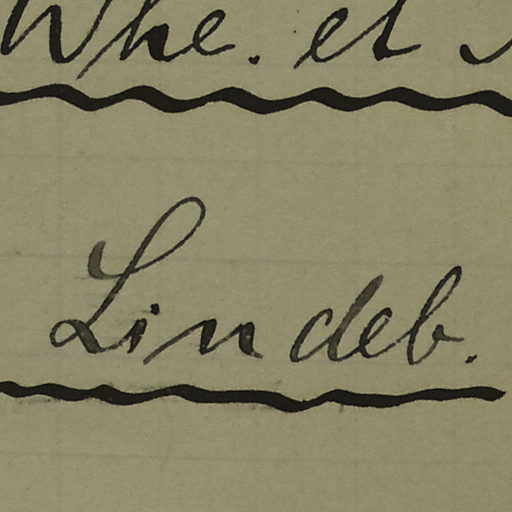 Whe. et
Lindeb.